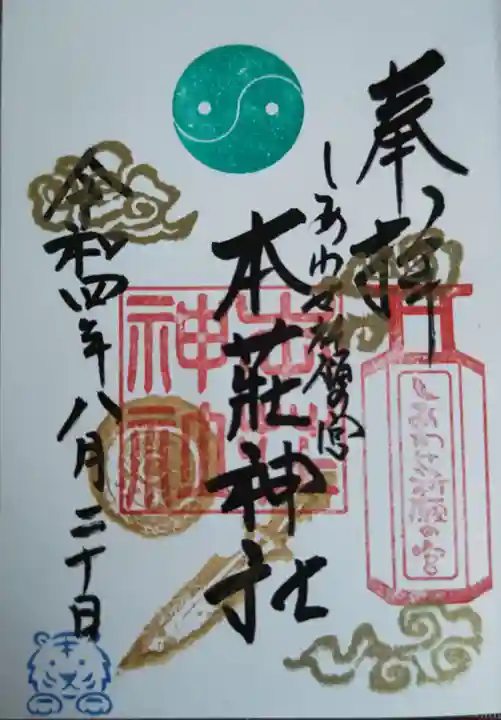 奉拝
しあわせ祈願の宮
本荘神社
令和四年八月二十日
しあわせ祈願の宮